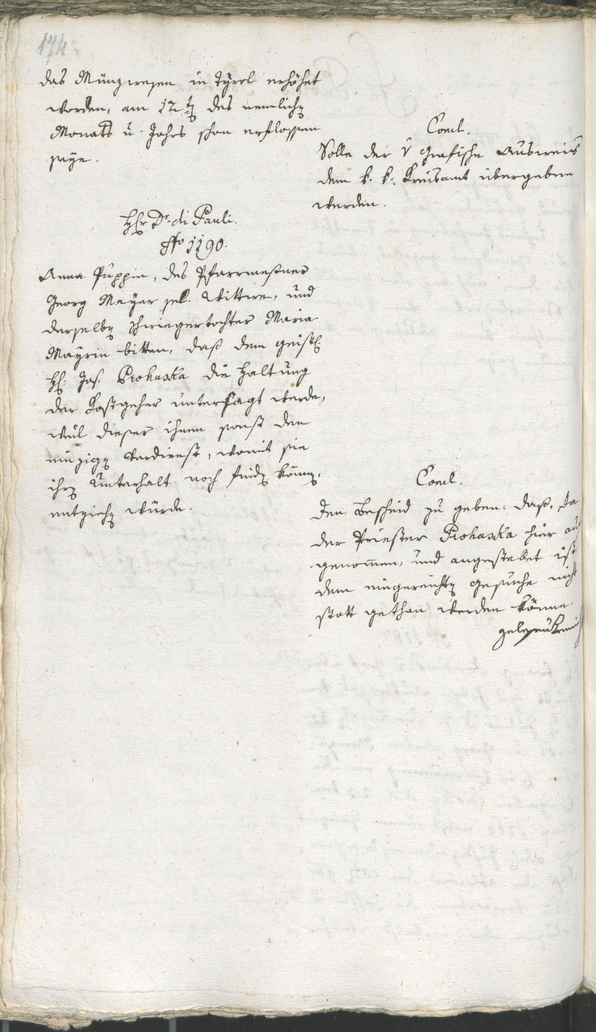 174.
das Münzwesen in Tyrol erhöhet
worden, am 12t des nemlichen
Monats u. Jahrs schon erflossen
seye.
Concl.
Solle der Ausweis
dem k. k. Kreisamt übergeben
werden.
Hr Dr. di Pauli.
No 1190.
Anna Puppin, des Pfarrmessner
Georg Mayer sel. Wittwe, und
derselben Schwiegertochter Maria
Mayrin bitten, daß dem geistl.
H: Jos. Prohaska die Haltung
der Kostgeher untersagt werde,
weil dieser ihnen sonst den
einzigen Verdienst, womit sie
ihren Unterhalt noch finden können,
entziehen würde.
Concl.
Den Bescheid zu geben: daß, da
der Priester Prohaska hier auf
genommen, und angestellet ist
dem eingereichten Gesuche nicht
statt gethan werden könne.